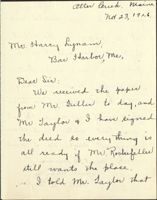 Otter Creek, Maine
Nov 23, 1926.
Mr Harry Lynam
Bar Harbor, Me,
Dear Sir:
We received the paper
from Mr. Fuller to day, and
Mr Taylor & I have signed
the deed so everything is
all ready if Mr. Rockefeller
still wants the place.
I told Mr Taylor that